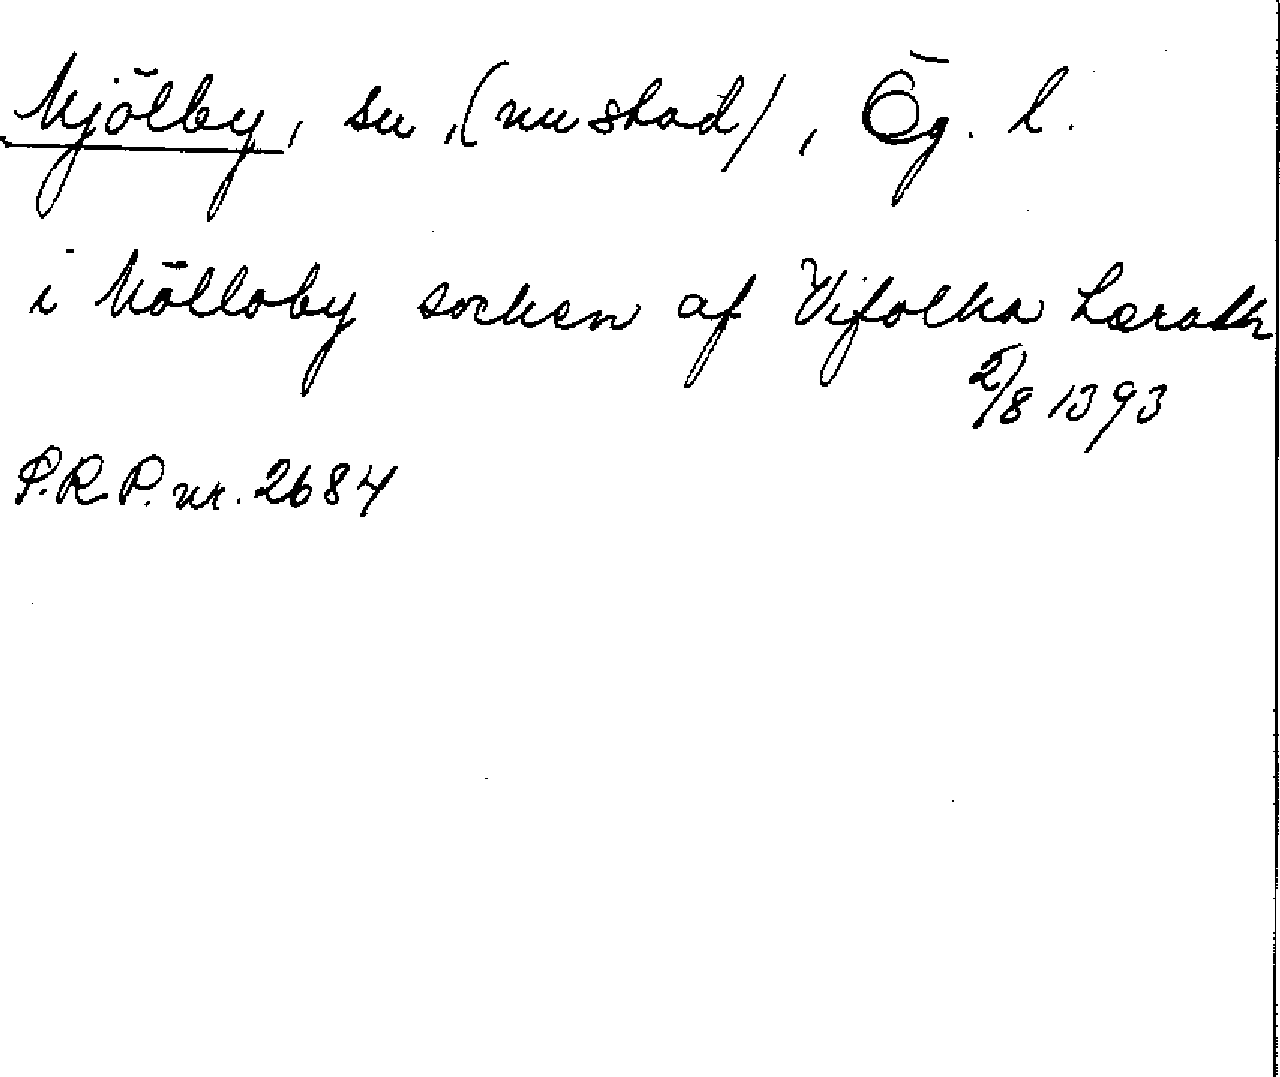 Mjölby, sn, (nu stad), Ög. l.
i Mölloby socken af Vifolka hærath
2/8 1393
P.R.P. nr. 2684